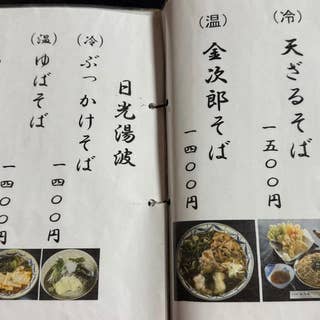 (冷)
天ざるそば
一五〇〇円
(温)
金次郎そば
一四〇〇円
日光湯波
(冷)
ぶっかけそば
一四〇〇円
(温)
ゆばそば
一四〇〇円